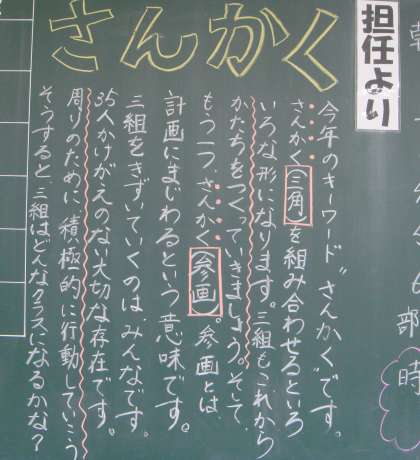 さんかく
担任より
今年のキーワード"さんかく"です。
さんかく(三角)を組み合わせるといろ
いろな形になります。三組もこれから
かたちをつくっていきましょう。そして、
もう一つ、さんかく(参画)。参画とは、
計画にまじわるという意味です。
三組をきずいていくのは、みんなです。
35人かけがえのない大切な存在です。
周りのために積極的に行動していこう
そうすると、三組はどんなクラスになるかな?
部
時